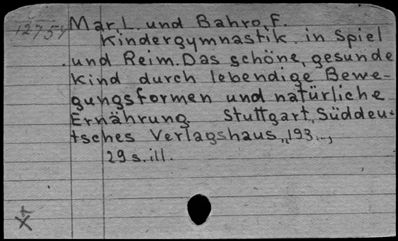 12757
Mar, L. und Bahro, F.
Kindergymnastik in Spiel
und Reim. Das schöne, gesunde
Kind durch lebendige Bewe-
gungsformen und natürliche
Ernährung. Stuttgart, Süddeu-
tsches Verlagshaus, 193..,
29 s. ill.